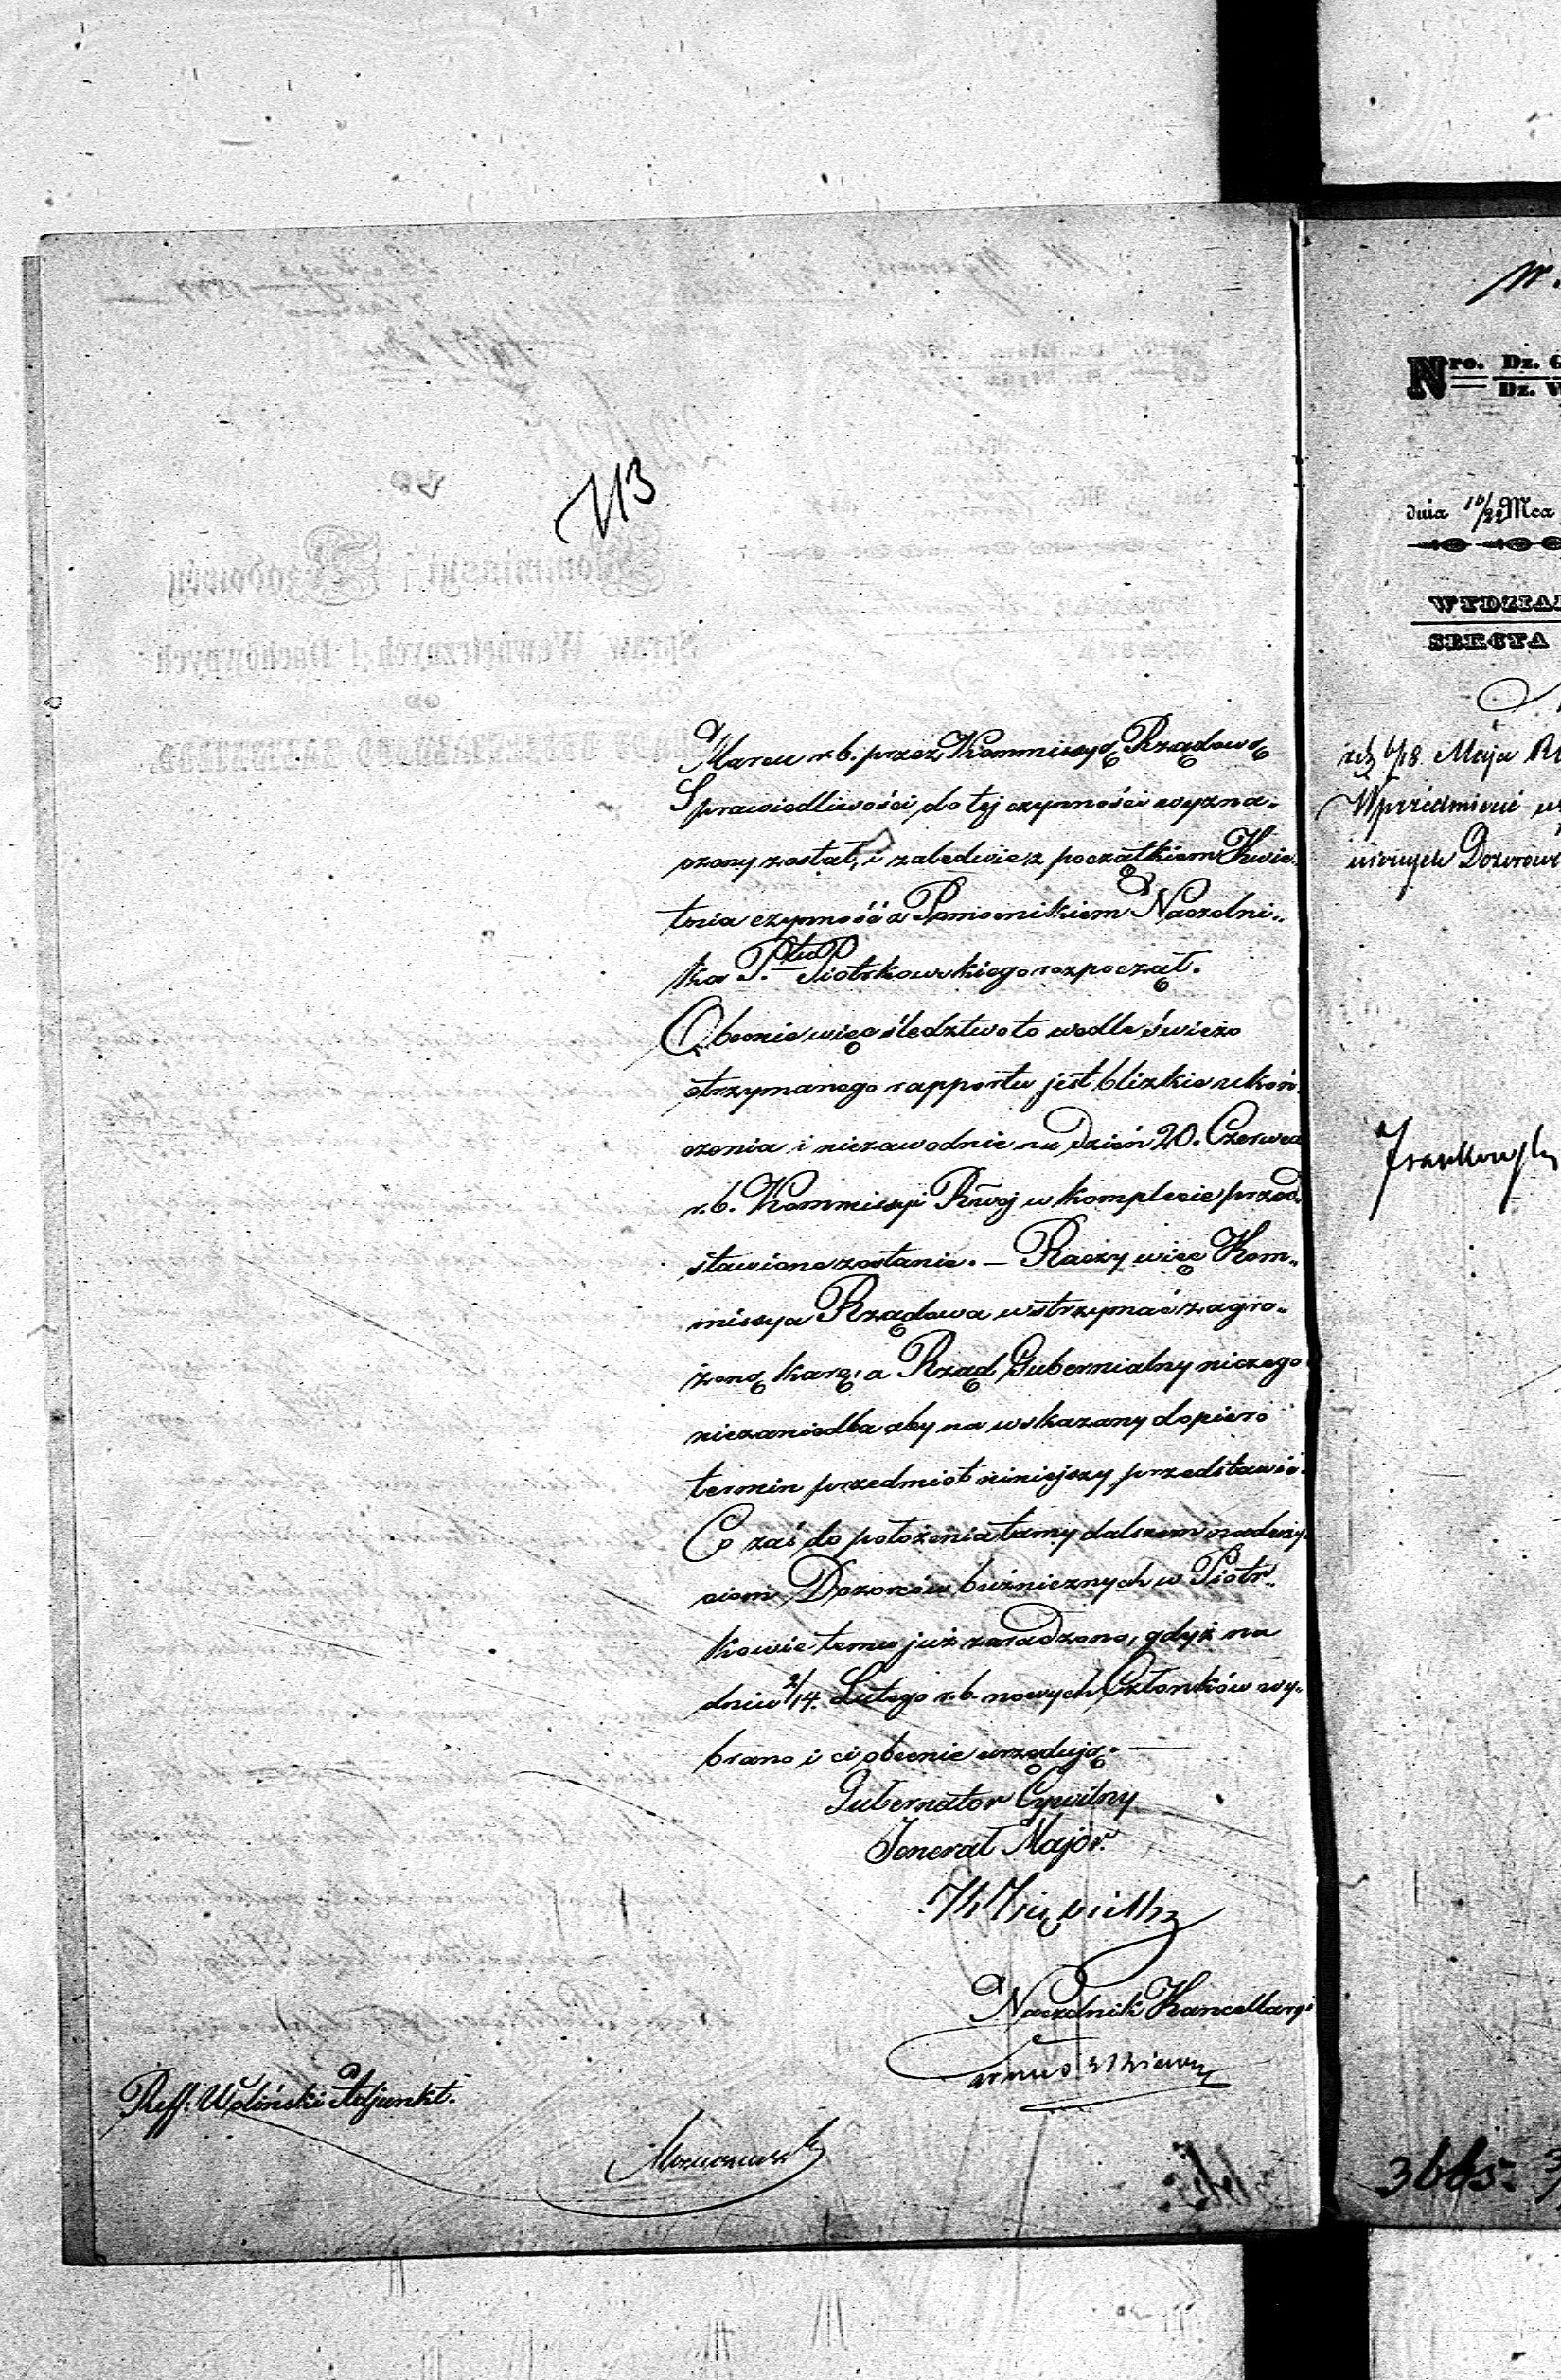 113
Marcu r. b. przez Kommissyą Rządową
Sprawiedliwości do tej czynności wyzna„
czony został, i zaledwie z początkiem Kwie„
tnia czynność z Pomocnikiem Naczelni„
ka P.tu Piotrkowskiego rozpoczął.
Obecnie więc śledztwo to wedle świeżo
otrzymanego rapportu jest blizkie ukoń„
czenia i niezawodnie na dzień 20. Czerwca
r. b. Kommissyi Rwej w komplecie przed„
stawione zostanie. — Raczy więc Kom„
missya Rządowa wstrzymać zagro„
żoną karę, a Rząd Gubernialny niczego
niezaniedba aby na wskazany dopiero
termin przedmiot niniejszy przedstawić.
Co zaś do położenia tamy dalszem naduży„
ciom Dozorców bużnicznych w Piotr„
kowie temu już zaradzono, gdyż na
dniu 2/14. Lutego r. b. nowych Członków wy„
brano i ci obecnie urzędują. —
Gubernator Cywilny
Jenerał Major.
Naczelnik Kancellaryi
Reff: Woliński Adjunkt.
Nro. Dz. G
Dz. W
dnia 10/22 Mca
WYDZIAŁ
SEKCYA
6/18 Maja
3665.